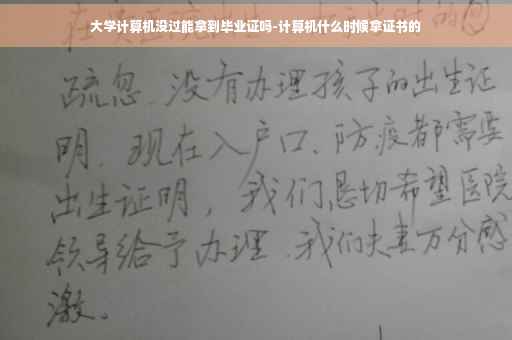 大学计算机没过能拿到毕业证吗-计算机什么时候拿证书的
疏忽、没有办理孩子的出生证
明、现在入户口、防疫都需要
出生证明，我们恳切希望医院
领导给予办理、我们夫妻万分感
激。